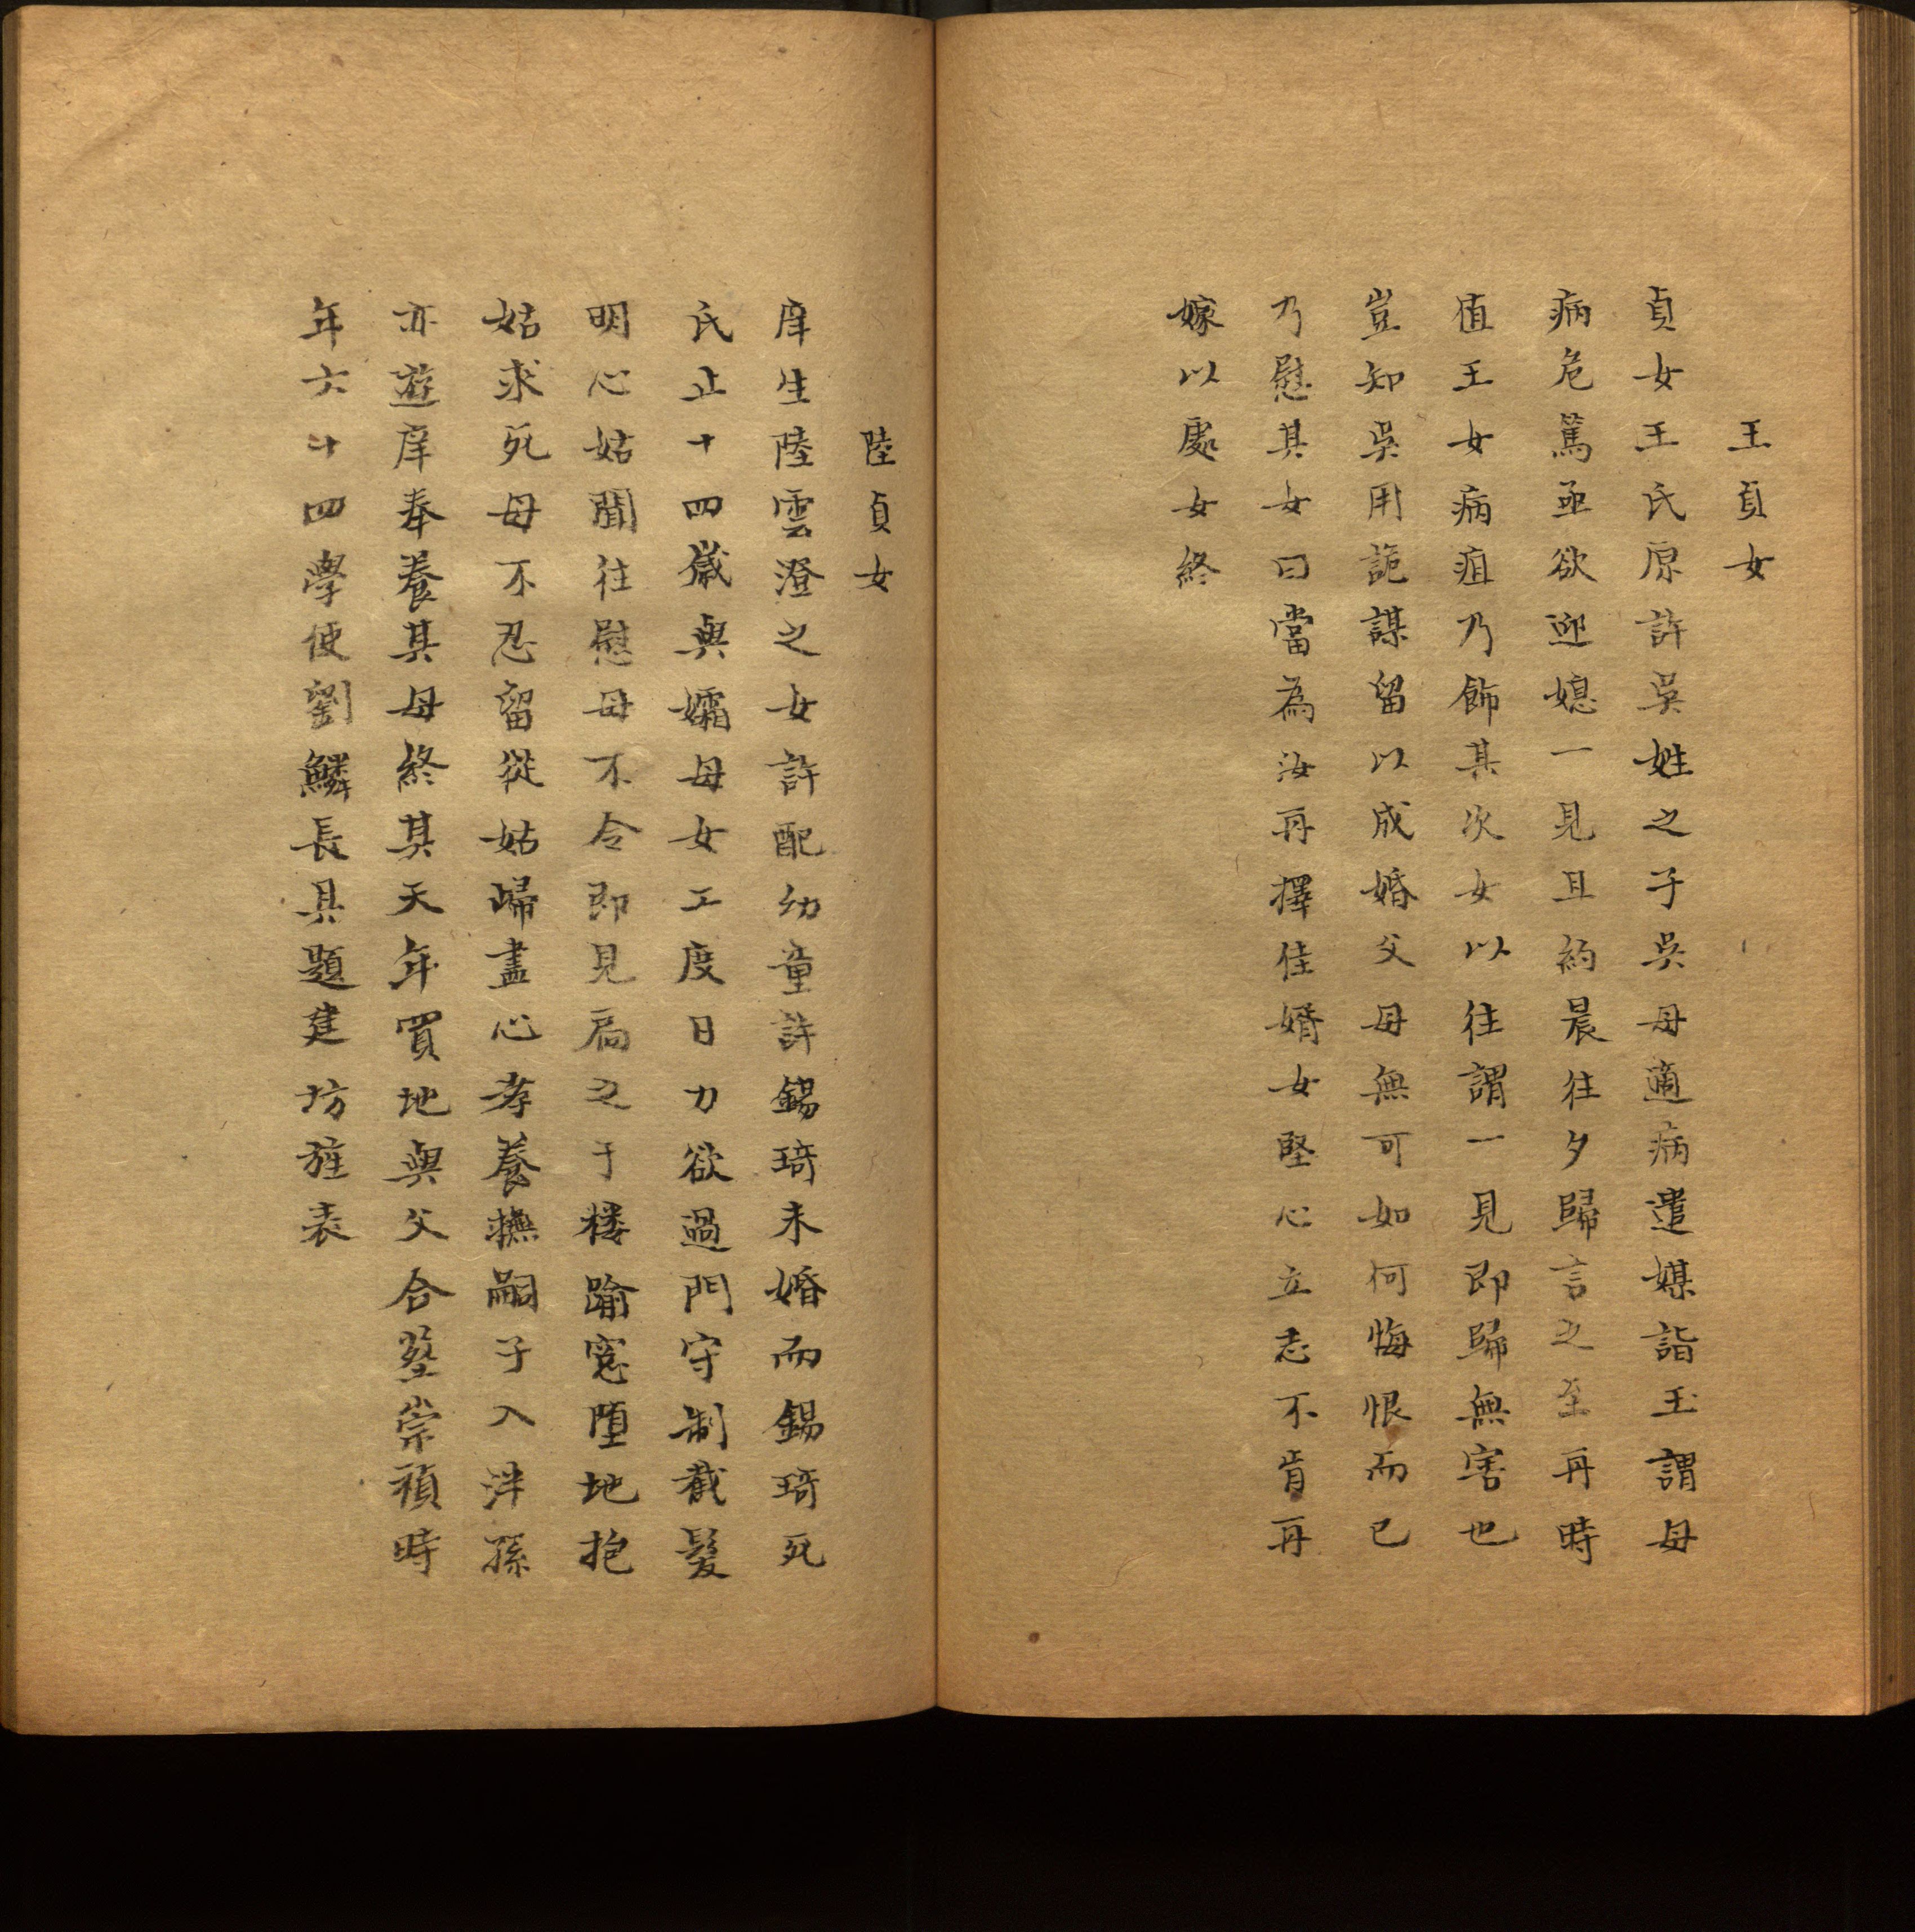 王貞女
貞女王氏原許吳姓之子吳母適病遣媒詣王謂母
病危篤亟欲迎媳一見且約晨往夕歸言之至再時
值王女病疽乃飾其次女以往謂一見即歸無害也
豈知吳用詭謀留以成婚父母無可如何悔恨而已
乃慰其女曰當為汝再擇佳婿女堅心立志不肯再
嫁以處女終
陸貞女
庠生陸雲澄之女許配幼童許錫琦未婚而錫琦死
氏止十四歲與孀母女工度日力欲過門守制截髮
明心姑聞往慰母不令即見扃之于楼踰窓墮地抱
姑求死母不忍留從姑歸盡心孝養撫嗣子入泮孫
亦遊庠奉養其母終其天年買地與父合塟崇禎時
年六十四學使劉鱗長具題建坊旌表